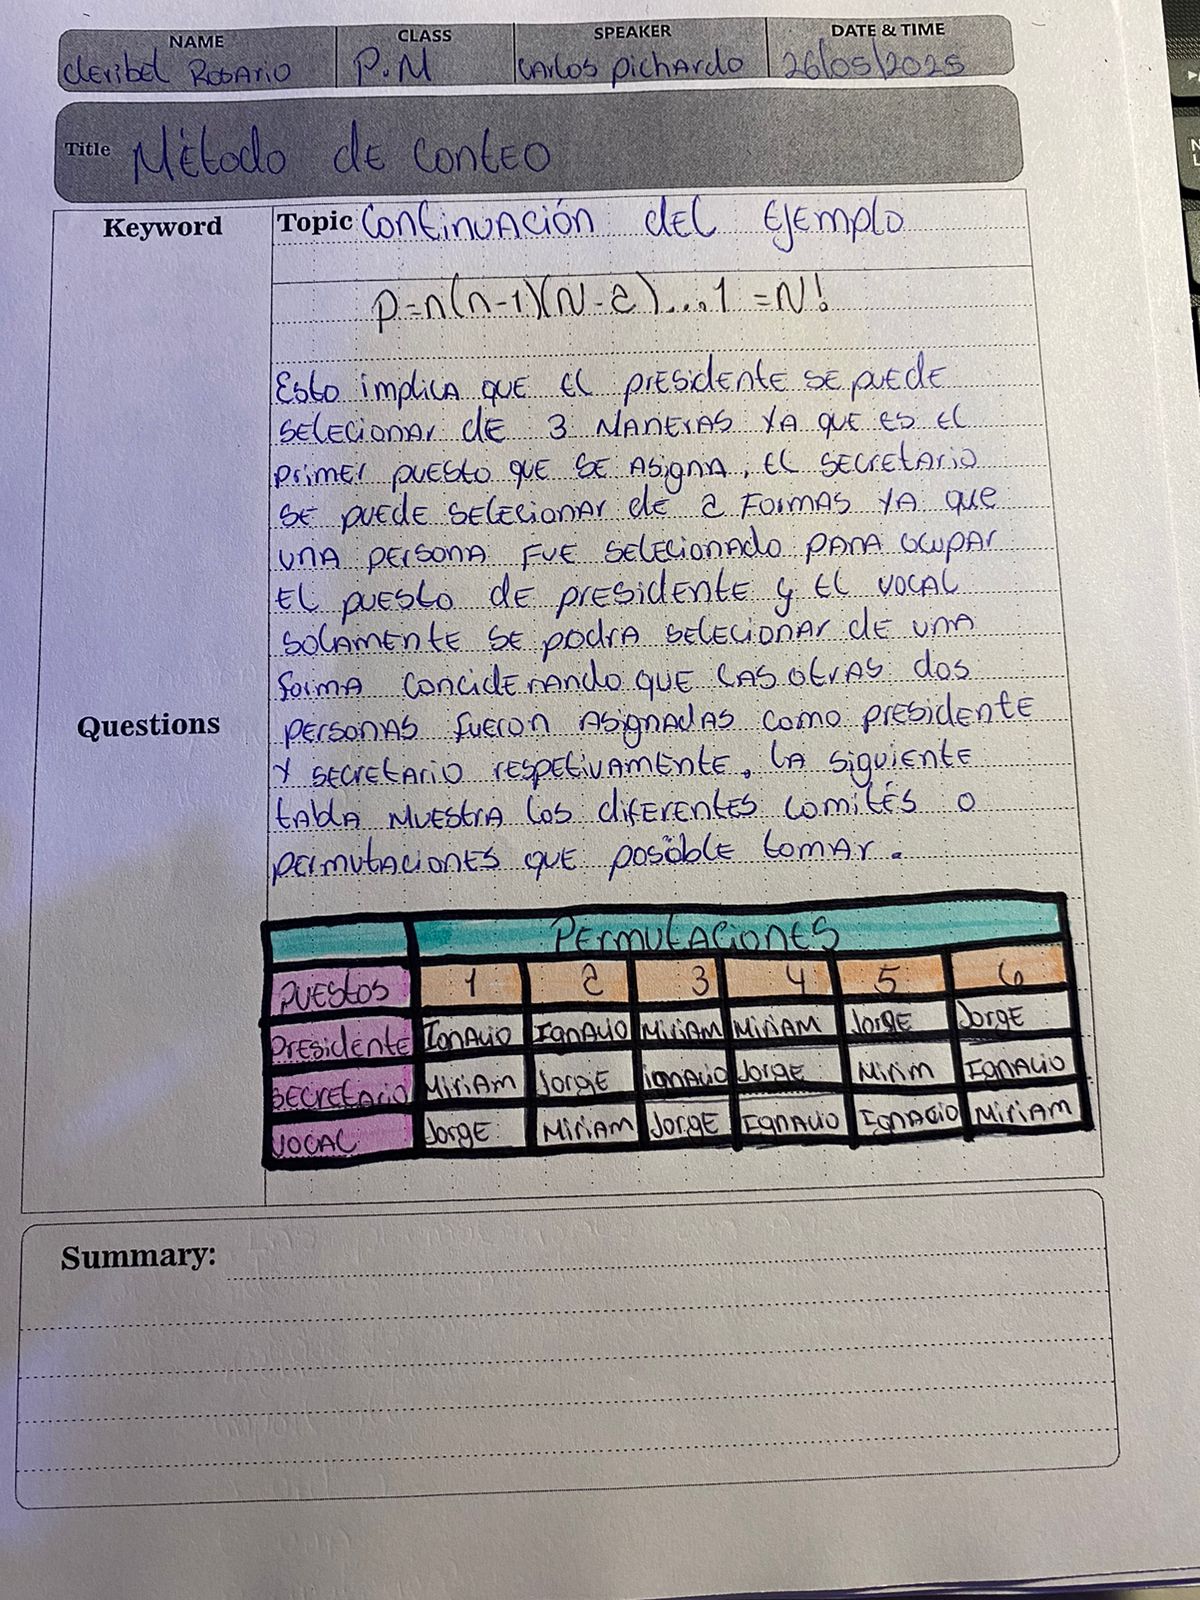 NAME CLASS SPEAKER DATE & TIME
Cleribel Rosario P.M Carlos Pichardo 26/05/2025
Title Método de Conteo
Keyword
Topic Continuación del Ejemplo
P=n(n-1)(N-2)...1 =N!
Esto implica que el presidente se puede
selecionar de 3 maneras ya que es el
primer puesto que se asigna, el secretario
se puede selecionar de 2 formas ya que
una persona fue selecionado para ocupar
el puesto de presidente y el vocal
solamente se podra selecionar de una
forma conciderando que las otras dos
Questions
personas fueron asignadas como presidente
y secretario respetivamente. La siguiente
tabla muestra los diferentes comités o
permutaciones que posible tomar.
Permutaciones
Puestos 1 2 3 4 5 6
Presidente Ignacio Ignacio Miriam Miriam Jorge Jorge
Secretario Miriam Jorge ignacio Jorge Mirim Ignacio
Vocal Jorge Miriam Jorge Ignacio Ignacio Miriam
Summary: